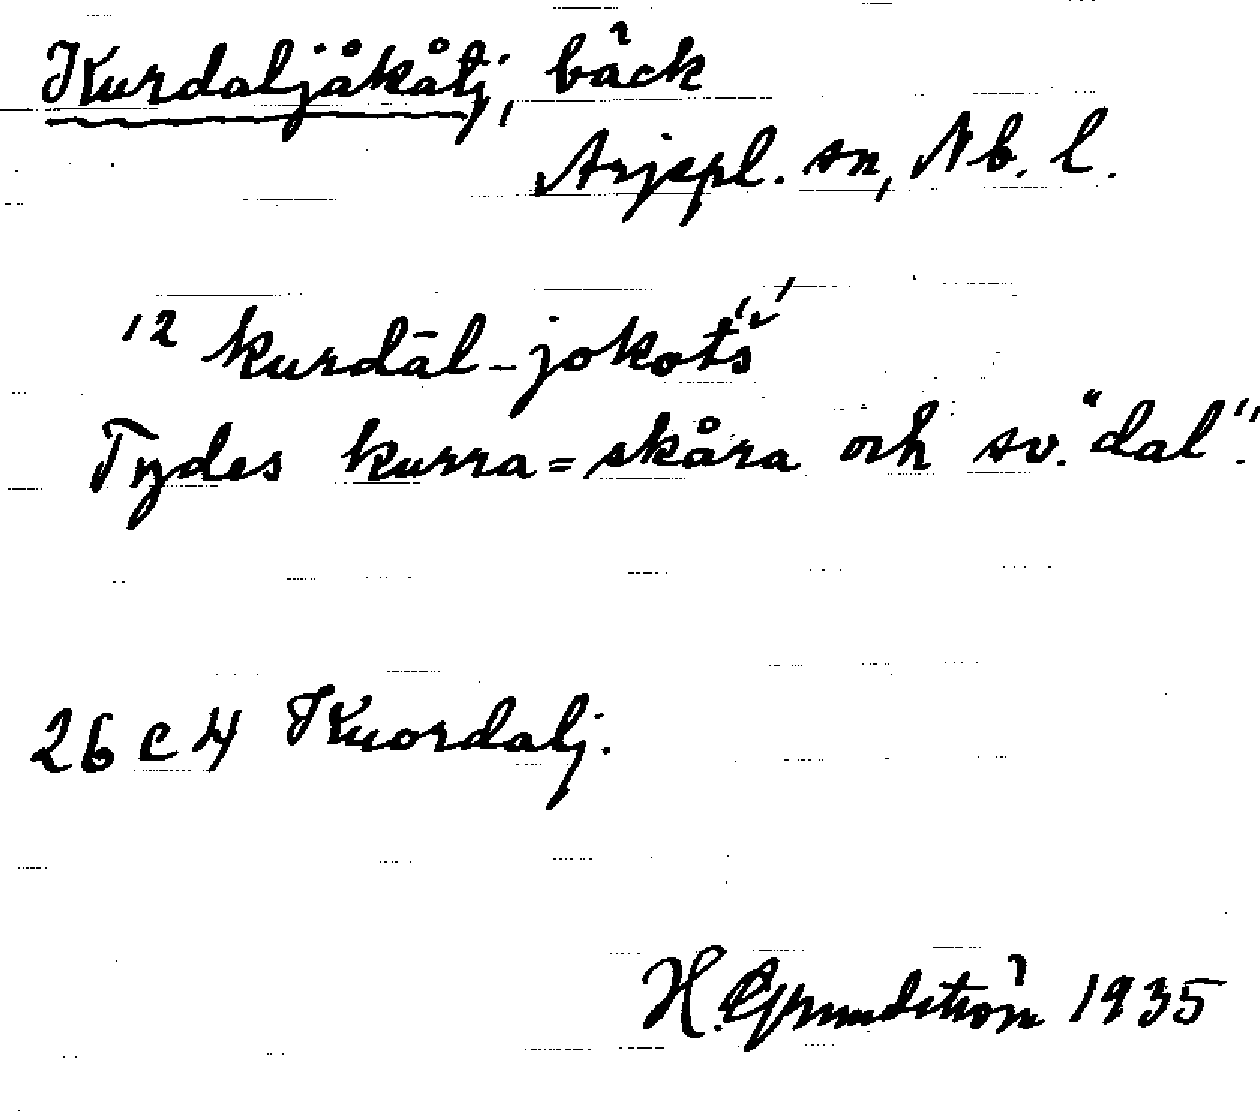 Kurdaljåkåtj, bäck
Arjepl. sn, Nb. l.
12 kurdāl-jokot́š́
Tydes kurra = skåra och sv. "dal".
26 c 4 Kuordalj.
H. Grundström 1935